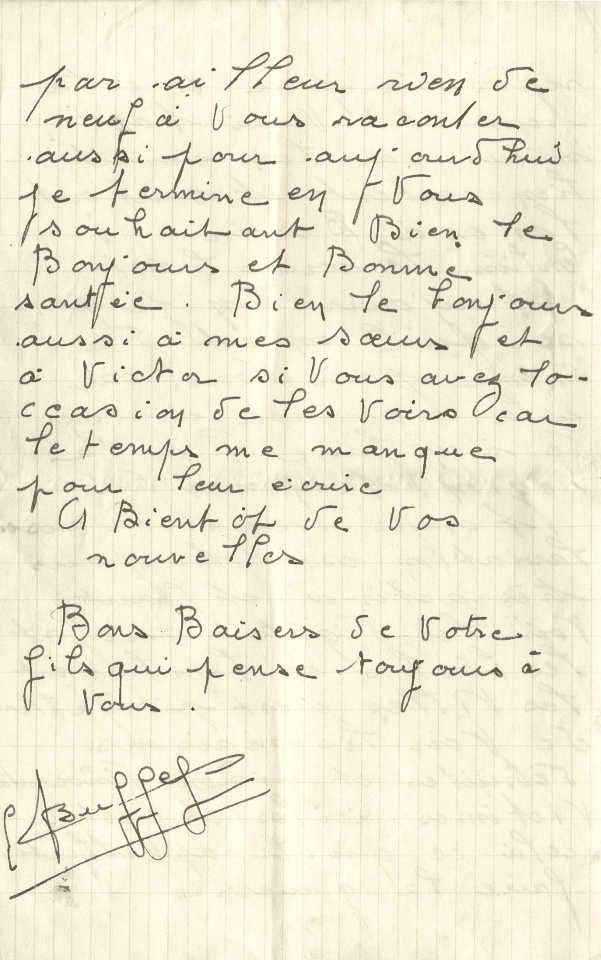 par ailleur rien de
neuf à Vous raconter
aussi pour aujourdhui
je termine en Vous
souhaitant Bien le
Bonjours et Bonne
santée. Bien le Bonjours
aussi à mes sœurs et
à Victor si Vous avez lo-
ccasion de les Voirs car
le temps me manque
pour leur écrire
A Bientôt de Vos
nouvelles
Bons Baisers de Votre
fils qui pense toujours à
Vous.
Buffet